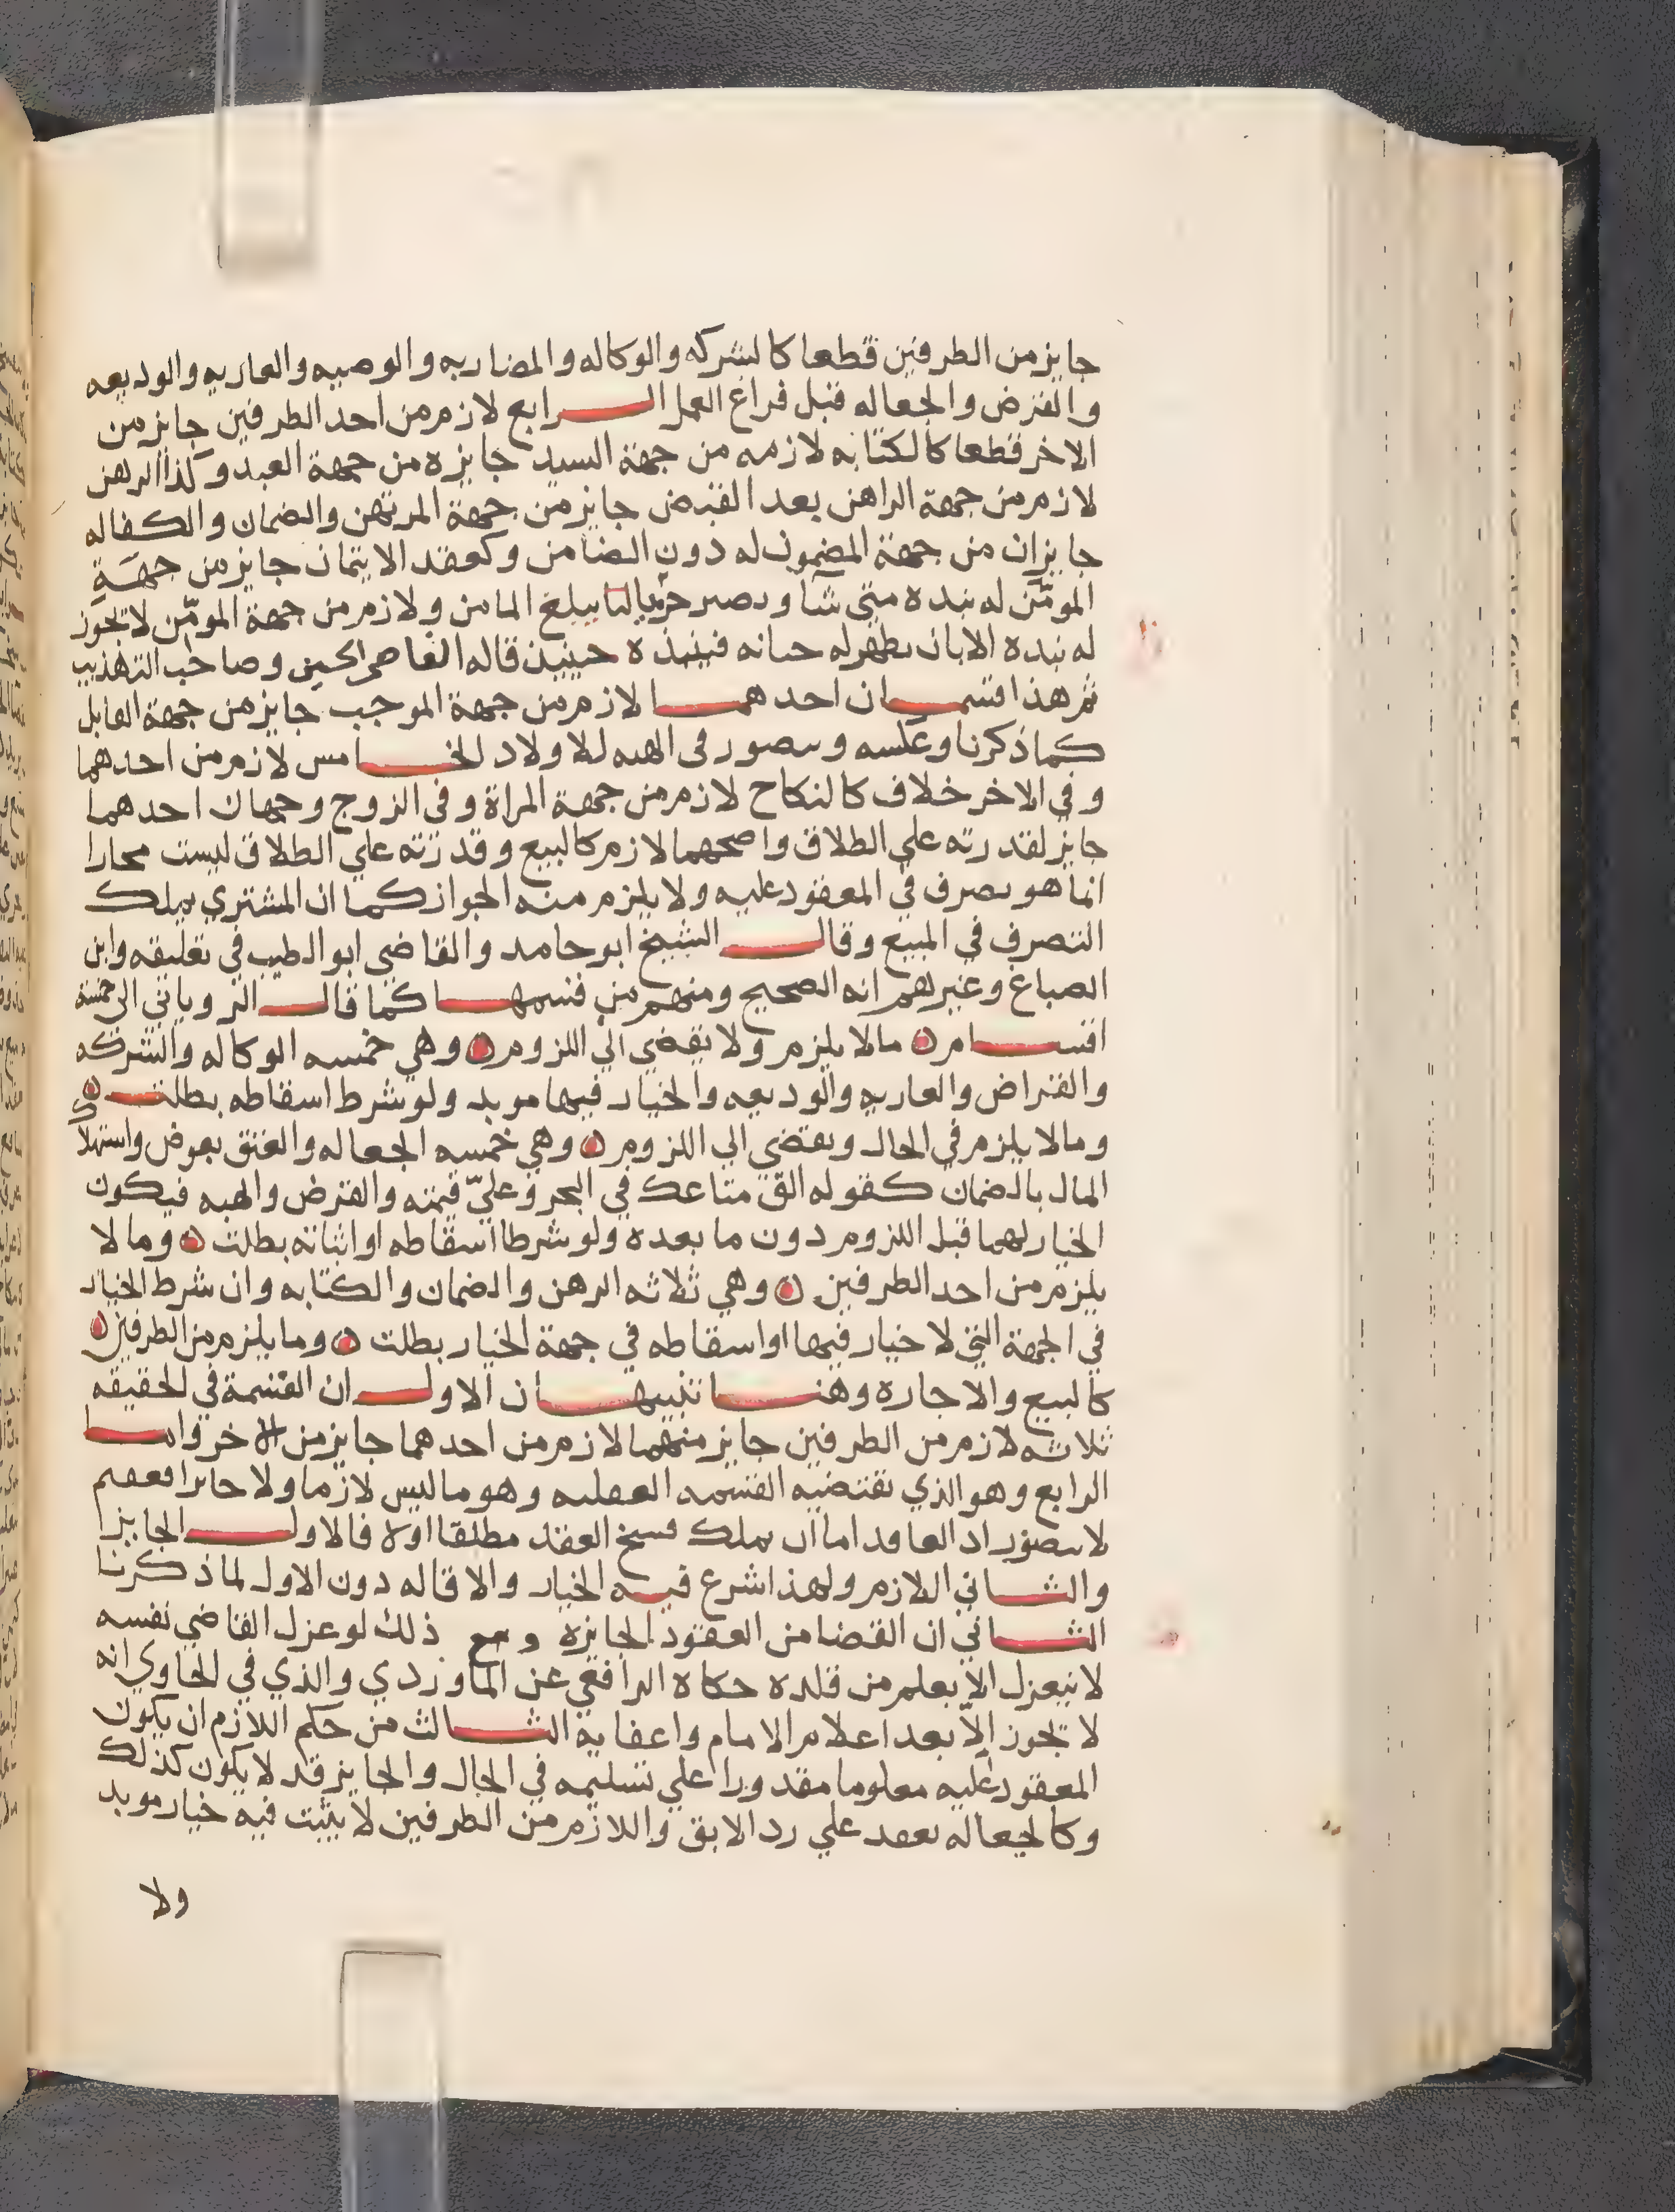 جايز من الطرفين قطعا كالشركه والوكاله والمضاربه والوصيه والعاريه والوديعه
والقرض والجعاله قبل فراغ العمل الرابع لازم من احد الطرفين جايز من
الاخر قطعا كالكتابه لازمه من جهة السيد جايزه من جهة العبد وكذا الرهن
لازم من جهة الراهن بعد القبض جايز من جهة المرتهن والضمان والكفاله
جايزان من جهة المضمون له دون الضامن وكعقد الايتمان جايز من جهة
المومّن له نبده متي شا ويصير حربيا لنا يبلغ المامن ولازم من جهة المومّن لا تجوز
له نبده الا بان يظهر له خيانه فينبذه حينيذ قاله القاضي الحسين وصاحب التهذيب
ثم هذا قسمان احدهما لازم من جهة الموجب جايز من جهة القابل
كما ذكرنا وعكسه ويتصور في الهبه للاولاد الخامس لازم من احدهما
وفي الاخر خلاف كالنكاح لازم من جهة المراة وفي الزوج وجهان احدهما
جايز لقدرته علي الطلاق واصحهما لازم كالبيع وقدرته علي الطلاق ليست
انما هو تصرف في المعقود عليه ولا يلزم منه الجواز كما ان المشتري يملك
التصرف في المبيع وقال الشيخ ابو حامد والقاضي ابو الطيب في تعليقه وابن
الصباغ وغيرهم انه الصحيح ومنهم من قسمها كما قال الروياني الي خمسة
اقسام ه مالا يلزم ولا يفضي الي اللزوم ه وهي خمسه الوكاله والشركه
والقراض والعاريه والوديعه والخيار فيها موبد ولو شرط اسقاطه بطلت ه
ومالا يلزم في الحال ويفضي الي اللزوم ه وهي خمسه الجعاله والعتق بعوض واستهلاك
المال بالضمان كقوله الق متاعك في البحر وعليّ قيمته والقرض والهبه فيكون
الخيار لهما قبل اللزوم دون ما بعده ولو شرطا اسقاطه او اثباته بطلت ه وما لا
يلزم من احد الطرفين ه وهي ثلاثه الرهن والضمان والكتابه وان شرط الخيار
في الجهة التي لا خيار فيها او اسقاطه في جهة الخيار بطلت ه وما يلزم من الطرفين ه
كالبيع والاجاره وهنا تنبيهان الاول ان القسمة في الحقيقه
ثلاثه لازم من الطرفين جايز منهما لازم من احدهما جايز من الاخر واما
الرابع وهو الذي تقتضيه القسمه العقليه وهو ما ليس لازما ولا جايزا فعقيم
لا يتصور اذ العاقد اما ان يملك فسخ العقد مطلقا اولا فالاول الجايز ا
والثاني اللازم ولهذا شرع فيه الخيار والاقاله دون الاول لما ذكرنا
الثاني ان القضا من العقود الجايزه ومع ذلك لو عزل القاضي نفسه
لا ينعزل الا بعلم من قلده حكاه الرافعي عن الماوردي والذي في الحاوي انه
لا تجوز الا بعد اعلام الامام واعفايه الثالث من حكم اللازم ان يكون
المعقود عليه معلوما مقدورا علي تسليمه في الحال والجايز قد لا يكون كذلك
وكالجعاله تعقد علي رد الابق واللازم من الطرفين لا يثبت فيه خيار موبد
ولا